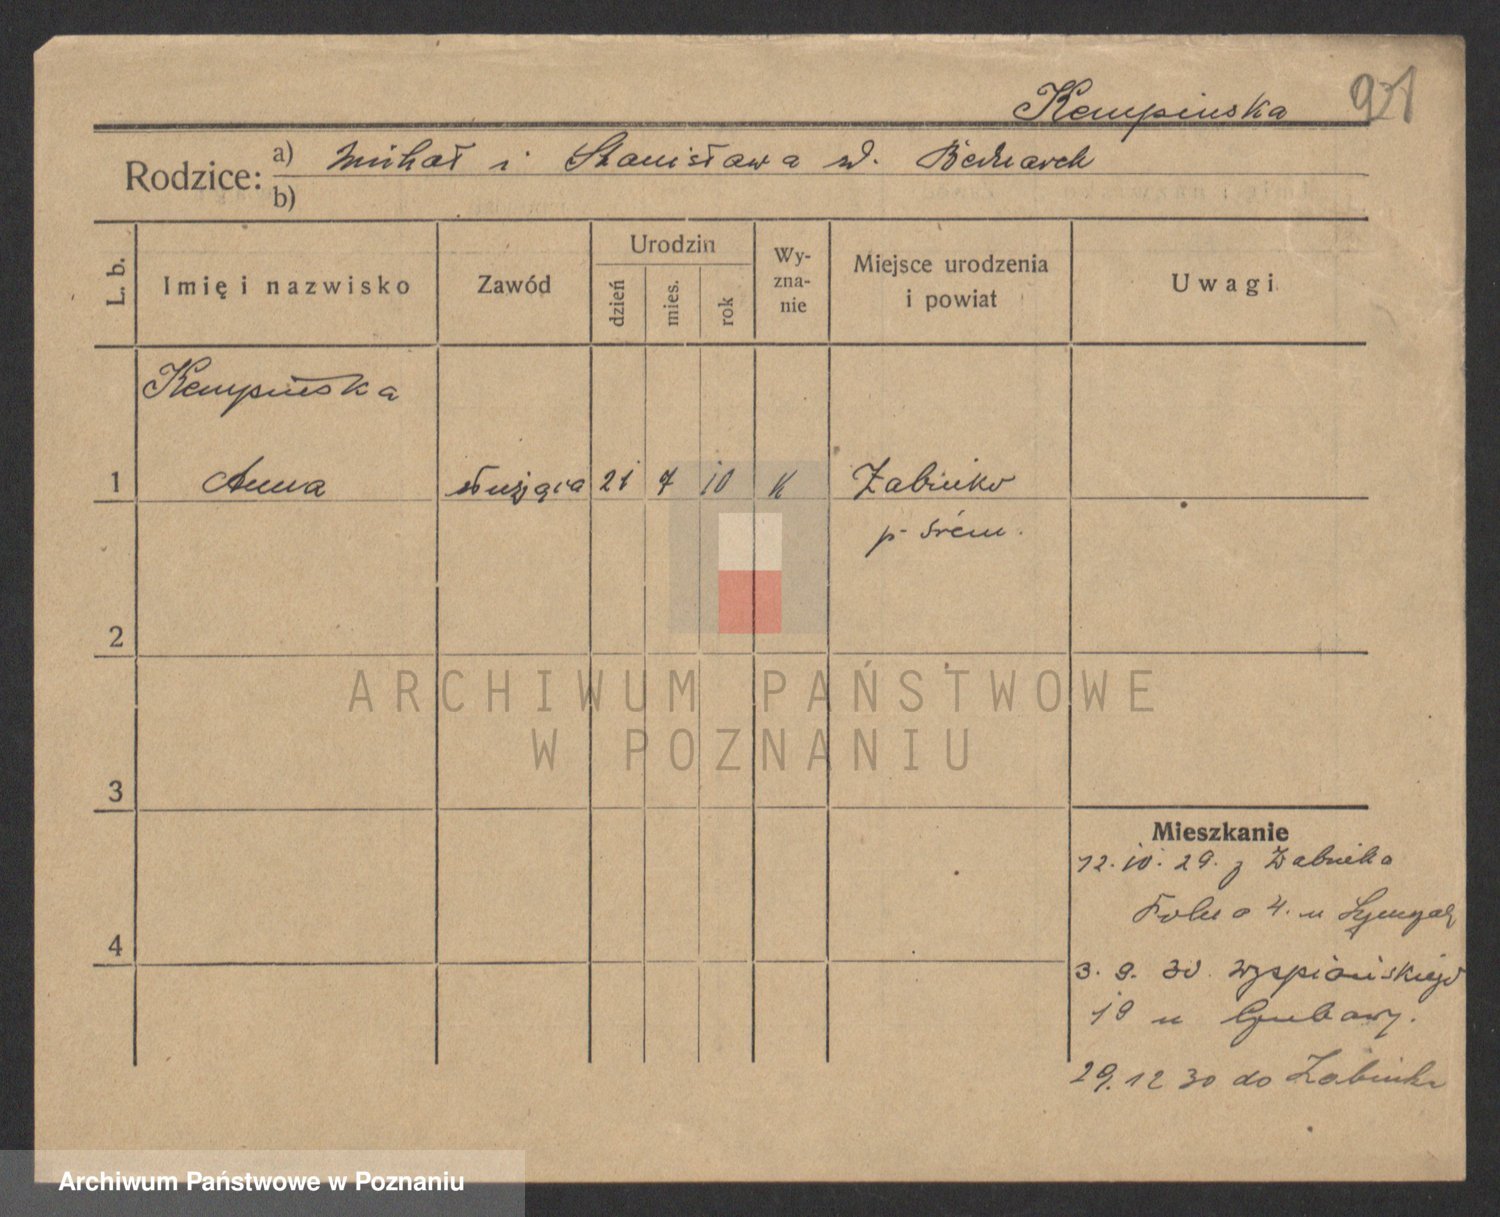 Kempinska 91
Rodzice: a) Michał i Stanisława zd. Bednarek
b)
L. b. Imię i nazwisko Zawód Urodzin dzień mies. rok Wyznanie Miejsce urodzenia i powiat Uwagi
Kempińska
1 Anna służąca 21 7 10 K Żabinko
p. Śrem.
2
ARCHIWUM PAŃSTWOWE
W POZNANIU
3
Mieszkanie
12. 10. 29. z Żabinka
4. u
4
3. 9. 30. Wyspiańskiego
19 u
29. 12 30 do Żabinka
Archiwum Państwowe w Poznaniu